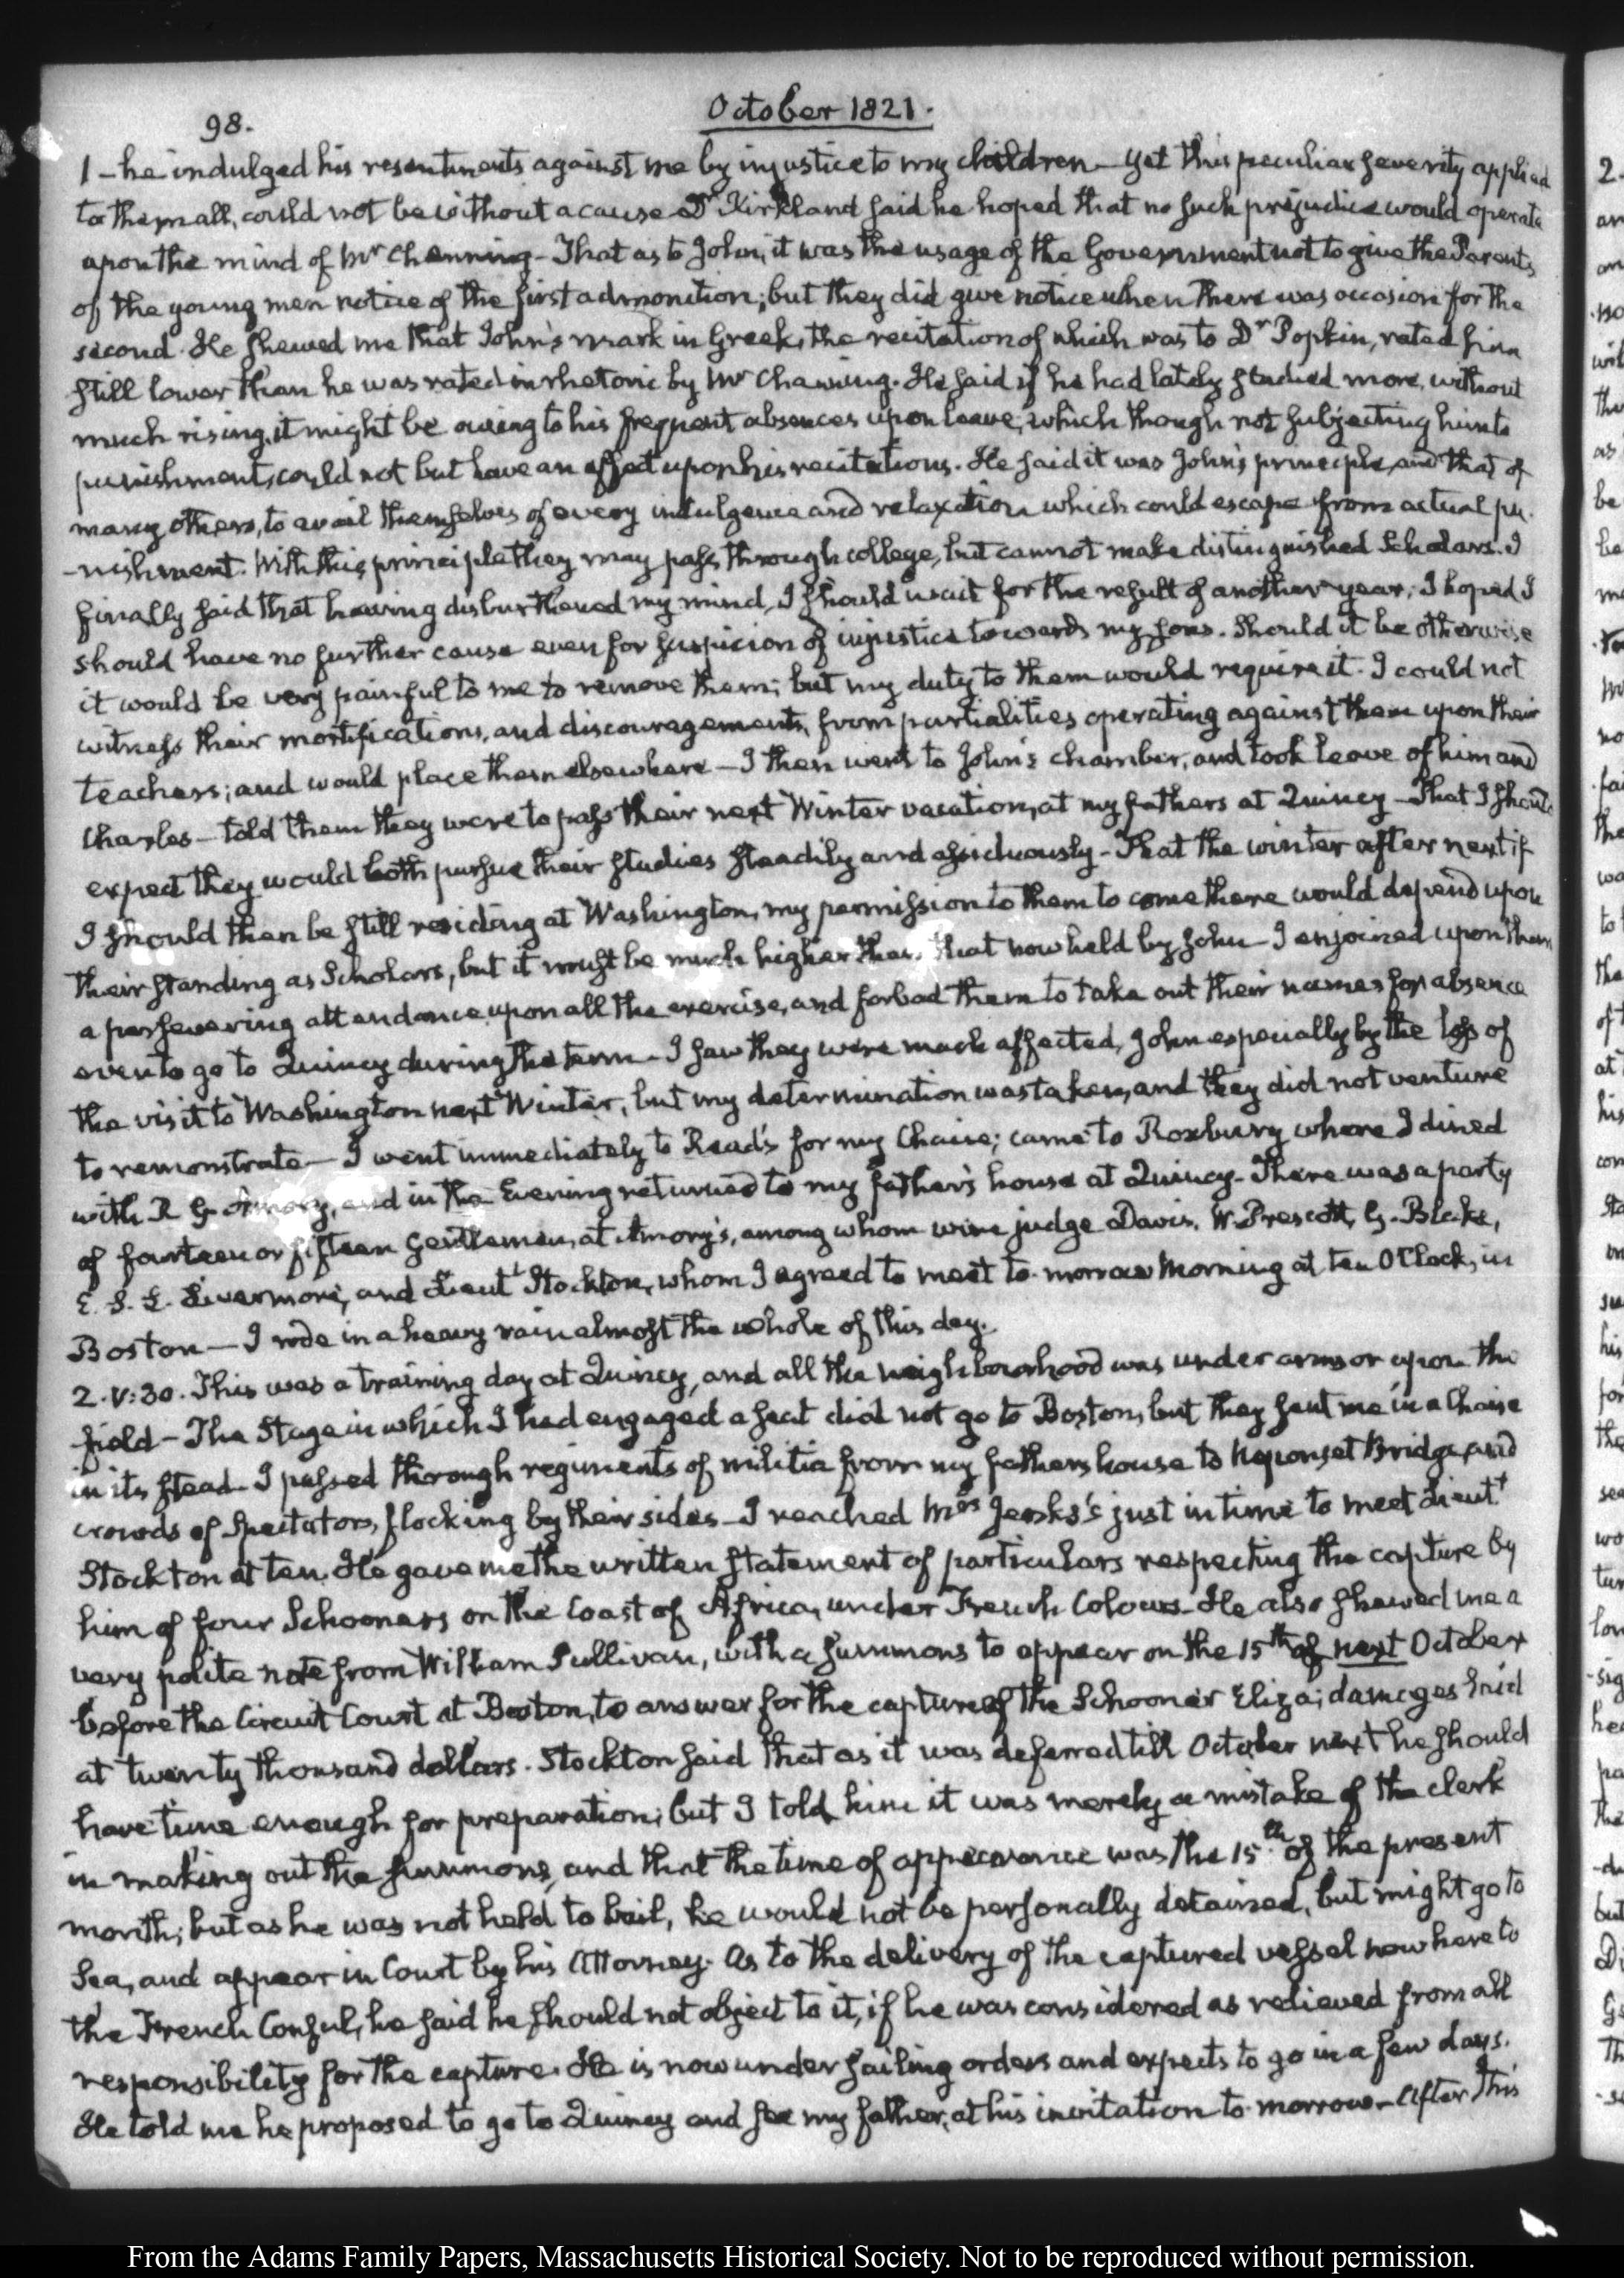 98.
October 1821.
1 - he indulged his resentments against me by injustice to my children - yet this peculiar severity applied
to them all, could not be without a cause - Dr Kirkland said he hoped that no such prejudice would operate
upon the mind of Mr Channing - That as to John, it was the usage of the Government not to give the Parents
of the young men notice of the first admonition; but they did give notice when there was occasion for the
second. He shewed me that John's mark in Greek, the recitation of which was to Dr Popkin, rated him
still lower than he was rated in rhetoric by Mr Channing. He said if he had lately studied more, without
much rising, it might be owing to his frequent absences upon leave, which though not subjecting him to
punishment, could not but have an effect upon his recitations. He said it was John's principle, and that of
many others, to avail themselves of every indulgence and relaxation which could escape from actual pu-
-nishment. With this principle they may pass through college, but cannot make distinguished Scholars. I
finally said that having disburthened my mind, I should wait for the result of another year; I hoped I
should have no further cause even for suspicion of injustice towards my sons. Should it be otherwise
it would be very painful to me to remove them; but my duty to them would require it. I could not
witness their mortifications, and discouragements, from partialities operating against them upon their
teachers; and would place them elsewhere - I then went to John's chamber, and took leave of him and
Charles - told them they were to pass their next Winter vacation, at my fathers at Quincy - That I should
expect they would both pursue their studies steadily and assiduously - That the winter after next if
I should then be still residing at Washington, my permission to them to come there would depend upon
their standing as Scholars, but it must be much higher than that now held by John - I enjoined upon them
a persevering attendance upon all the exercise, and forbad them to take out their names for absence
even to go to Quincy during the term - I saw they were much affected, John especially by the loss of
the visit to Washington next Winter, but my determination was taken, and they did not venture
to remonstrate - I went immediately to Read's for my Chaise; came to Roxbury where I dined
with R G Amory, and in the Evening returned to my father's house at Quincy - There was a party
of fourteen or fifteen Gentlemen, at Amory's, among whom were judge Davis, W. Prescott, G. Blake,
E. S. L. Livermore, and Lieut Stockton, whom I agreed to meet to-morrow Morning at ten O'Clock, in
Boston - I rode in a heavy rain almost the whole of this day.
2. V:30. This was a training day at Quincy, and all the neighbourhood was under arms or upon the
field - The Stage in which I had engaged a seat did not go to Boston, but they sent me in a Chaise
in its stead - I passed thorough regiments of militia from my fathers house to Neponset Bridge, and
crowds of Spectators, flocking by their sides - I reached Mrs Jenks's just in time to meet Lieut
Stockton at ten. He gave me the written statement of particulars respecting the capture by
him of four Schooners on the Coast of Africa, under French Colours - He also shewed me a
very polite note from William Sullivan, with a summons to appear on the 15th of next October
before the Circuit Court at Boston, to answer for the capture of the Schooner Eliza; damages laid
at twenty thousand dollars. Stockton said that as it was deferred till October next he should
have time enough for preparation; but I told him it was merely a mistake of the clerk
in making out the summons, and that the time of appearance was the 15th of the present
month; but as he was not held to bail, he would not be personally detained, but might go to
Sea, and appear in Court by his Attorney. As to the delivery of the captured vessel now here to
the French Consul, he said he should not object to it, if he was considered as relieved from all
responsibility for the capture. He is now under sailing orders and expects to go in a few days.
He told me he proposed to go to Quincy and see my father, at his invitation to-morrow - After this
From the Adams Family Papers, Massachusetts Historical Society. Not to be reproduced without permission.